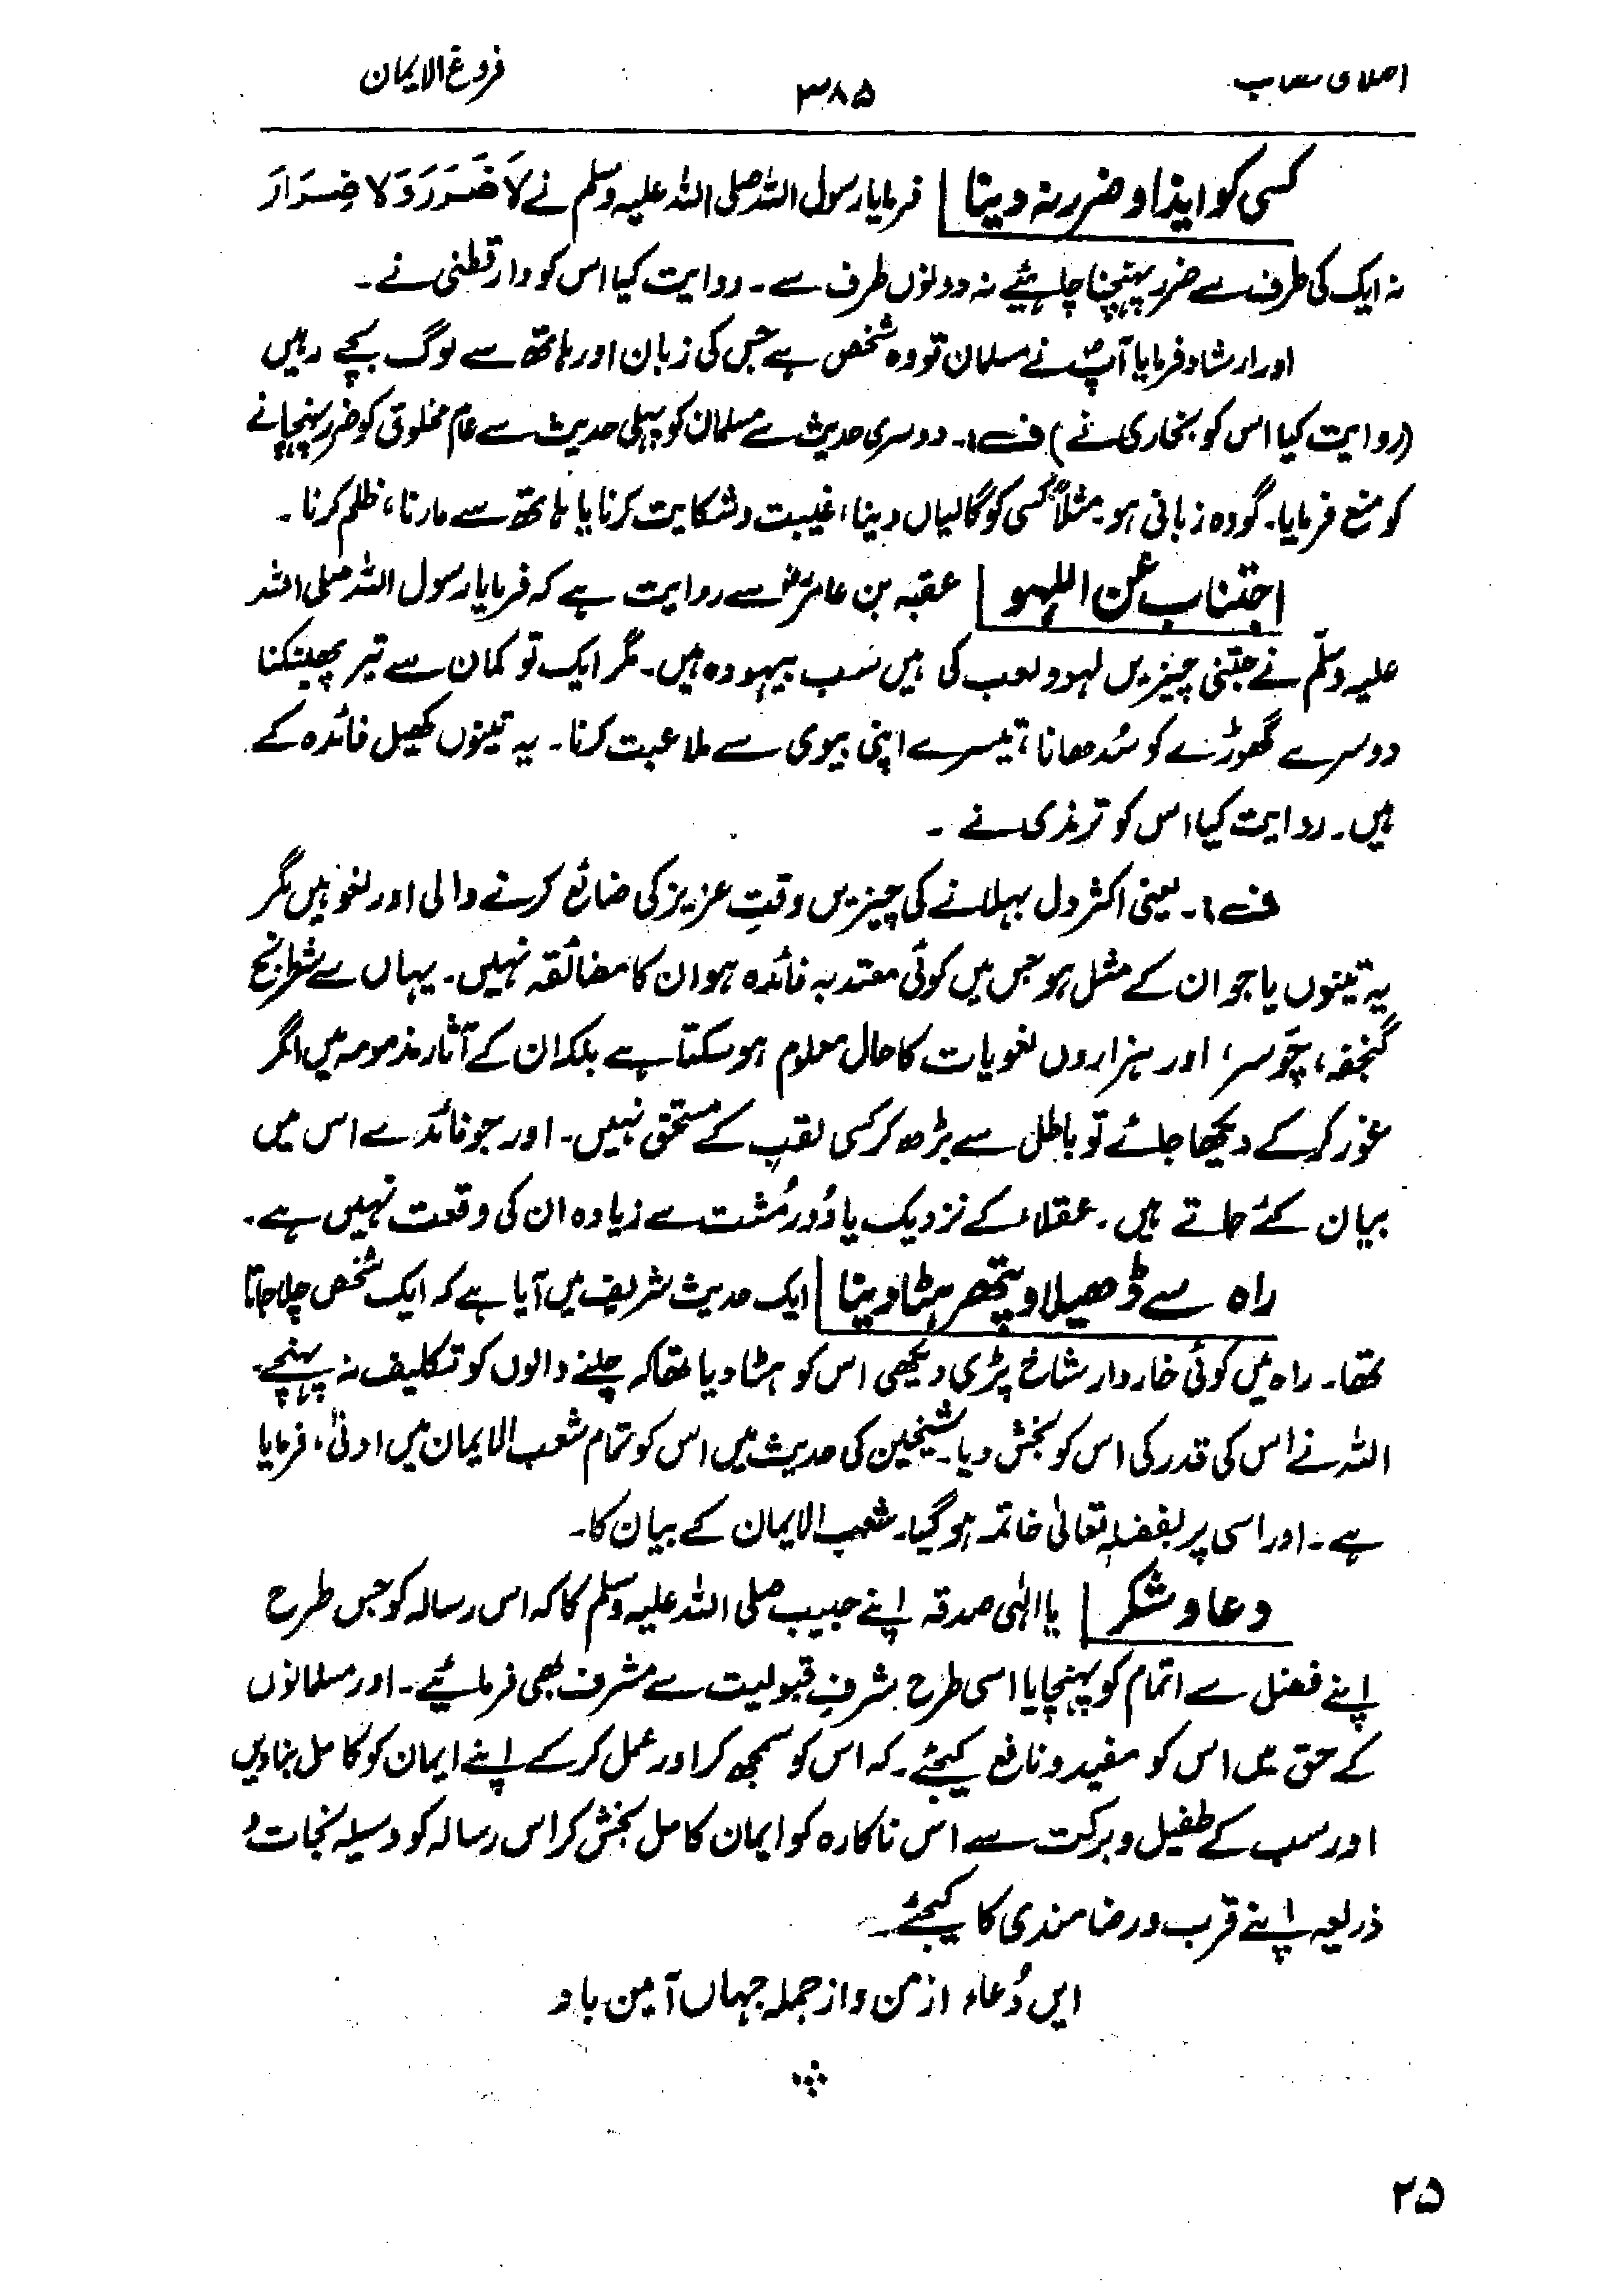 اصلاحی نصاب ۳۸۵ فروع الایمان
کسی کو ایذا و ضرر نہ دینا فرمایا رسول اللہ صلی اللہ علیہ وسلم نے لَا ضَرَرَ وَلَا ضِرَارَ
نہ ایک کی طرف سے ضرر پہنچنا چاہئیے نہ دونوں طرف سے۔ روایت کیا اس کو دارقطنی نے۔
اور ارشاد فرمایا آپؐ نے مسلمان تو وہ شخص ہے جس کی زبان اور ہاتھ سے لوگ بچے رہیں
(روایت کیا اس کو بخاری نے) ف۱۔ دوسری حدیث سے مسلمان کو پہلی حدیث سے عام مخلوق کو ضرر پہنچانے
کو منع فرمایا۔ گو وہ زبانی ہو۔ مثلاً کسی کو گالیاں دینا، غیبت و شکایت کرنا یا ہاتھ سے مارنا، ظلم کرنا۔
اجتناب عن اللہو عقبہ بن عامرؓ سے روایت ہے کہ فرمایا رسول اللہ صلی اللہ
علیہ وسلّم نے جتنی چیزیں لہو و لعب کی ہیں سَب بیہودہ ہیں۔ مگر ایک تو کمان سے تیر پھینکنا
دوسرے گھوڑے کو سُدھانا، تیسرے اپنی بیوی سے ملاعبت کرنا۔ یہ تینوں کھیل فائدہ کے
ہیں۔ روایت کیا اس کو ترمذی نے۔
ف۱۔ یعنی اکثر دل بہلانے کی چیزیں وقتِ عزیز کی ضائع کرنے والی اور لغو ہیں مگر
یہ تینوں یا جو ان کے مثل ہو جس میں کوئی معتد بہ فائدہ ہو ان کا مضائقہ نہیں۔ یہاں سے شطرنج
گنجفہ، چَوسر، اور ہزاروں لغویات کا حال معلوم ہو سکتا ہے بلکہ ان کے آثار مذمومہ میں اگر
غور کر کے دیکھا جائے تو باطل سے بڑھ کر کسی لقب کے مستحق نہیں۔ اور جو فائدے اس میں
بیان کئے جاتے ہیں۔ عقلاء کے نزدیک یا دُور مُشت سے زیادہ ان کی وقعت نہیں ہے۔
راہ سے ڈھیلا و پتھر ہٹا دینا ایک حدیث شریف میں آیا ہے کہ ایک شخص چلا جاتا
تھا۔ راہ میں کوئی خاردار شاخ پڑی دیکھی اس کو ہٹا دیا تھا کہ چلنے والوں کو تکلیف نہ پہنچے۔
اللہ نے اس کی قدر کی اس کو بخش دیا۔ شیخین کی حدیث میں اس کو تمام شعب الایمان میں ادنیٰ، فرمایا
ہے۔ اور اسی پر بفضلہ تعالیٰ خاتمہ ہو گیا۔ شعب الایمان کے بیان کا۔
دعا و شکر یا الٰہی صدقہ اپنے حبیب صلی اللہ علیہ وسلم کا کہ اس رسالہ کو جس طرح
اپنے فضل سے اتمام کو پہنچایا اسی طرح بشرفِ قبولیت سے مشرف بھی فرمائیے۔ اور مسلمانوں
کے حق میں اس کو مفید و نافع کیجئے۔ کہ اس کو سمجھ کر اور عمل کر کے اپنے ایمان کو کامل بناویں
اور سب کے طفیل و برکت سے اس ناکارہ کو ایمان کامل بخش کر اس رسالہ کو وسیلہ نجات و
ذریعہ اپنے قرب و رضامندی کا کیجئے۔
ایں دُعاء از من و از جملہ جہاں آمین باد
۲۵